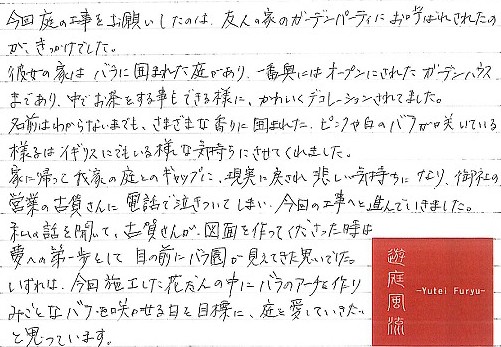 今回庭の工事をお願いしたのは、友人の家のガーデンパーティにお呼ばれされたの
が、きっかけでした。
彼女の家はバラに囲まれた庭があり、一番奥にはオープンにされたガーデンハウス
まであり、中でお茶をする事もできる様に、かわいくデコレーションされてました。
名前はわからないまでも、さまざまな香りに囲まれた、ピンクや白のバラが咲いている
様子はイギリスにでもいる様な気持ちにさせてくれました。
家に帰って我家の庭とのギャップに、現実に戻され悲しい気持ちになり、御社の
営業の古賀さんに電話で泣きついてしまい、今回の工事へと進んでいきました。
私の話を聞いて、古賀さんが図面を作ってくださった時は
夢への第一歩として目の前にバラ園が見えてきた思いでした。
いずれは、今回施工した花だんの中にバラのアーチを作り
みごとなバラを咲かせる日を目標に、庭を愛していきたい
と思っています。
遊庭風流
-Yutei Furyu-